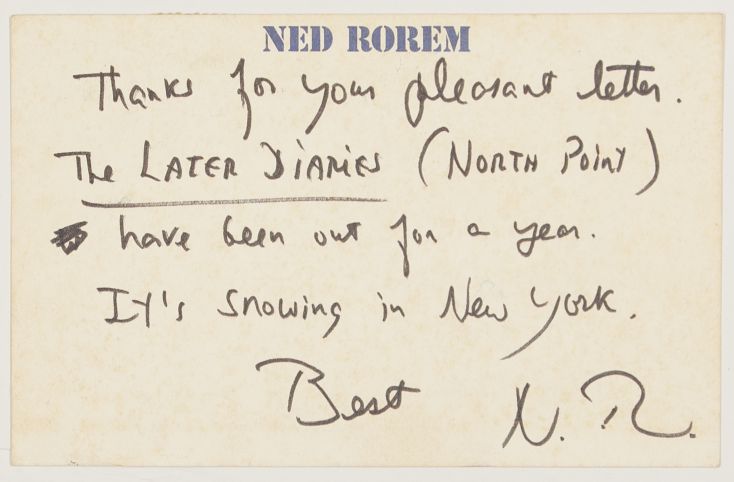 NED ROREM
Thanks for your pleasant letter.
The LATER DIARIES (NORTH POINT)
have been out for a year.
It's snowing in New York.
Best N. R.